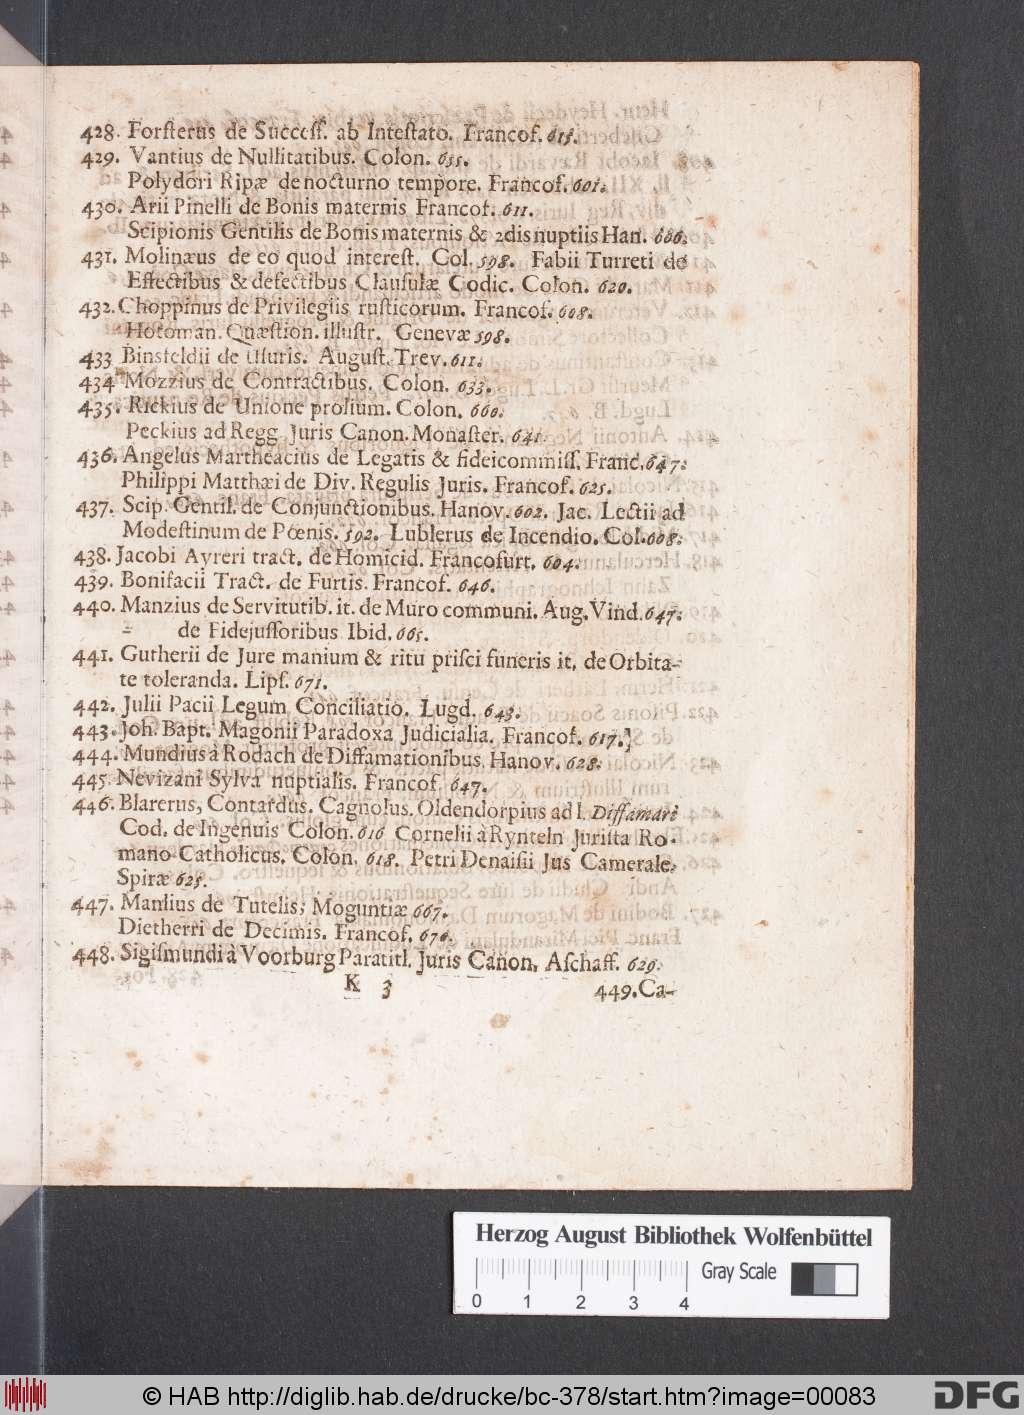 428. Forſterus de Succeſſ. ab Inteſtato. Francof. 615.
429. Vantius de Nullitatibus. Colon. 655.
Polydori Ripæ de nocturno tempore. Francof. 601.
430. Arii Pinelli de Bonis maternis Francof. 611.
Scipionis Gentilis de Bonis maternis & 2dis nuptiis Han. 606.
431. Molinæus de eo quod intereſt. Col. 598. Fabii Turreti de
Effectibus & defectibus Clauſulæ Codic. Colon. 620.
432. Choppinus de Privilegiis ruſticorum. Francof. 608.
Hotoman. Quæſtion. illuſtr. Genevæ 598.
433 Binsfeldii de Uſuris. Auguſt. Trev. 611.
434 Mozzius de Contractibus. Colon. 633.
435. Rickius de Unione prolium. Colon. 660.
Peckius ad Regg Juris Canon. Monaſter. 641.
436. Angelus Martheacius de Legatis & fideicommiſſ. Franc. 647.
Philippi Matthæi de Div. Regulis Juris. Francof. 625.
437. Scip. Gentil. de Conjunctionibus. Hanov. 602. Jac. Lectii ad
Modeſtinum de Pœnis. 592. Lublerus de Incendio. Col. 608.
438. Jacobi Ayreri tract. de Homicid. Francofurt. 604.
439. Bonifacii Tract. de Furtis. Francof. 646.
440. Manzius de Servitutib. it. de Muro communi. Aug. Vind. 647.
- de Fidejuſſoribus Ibid. 665.
441. Gutherii de Jure manium & ritu priſci funeris it. de Orbita-
te toleranda. Lipſ. 671.
442. Julii Pacii Legum Conciliatio. Lugd. 643.
443. Joh. Bapt. Magonii Paradoxa Judicialia. Francof. 617.]
444. Mundius à Rodach de Diffamationibus Hanov. 628.
445. Nevizani Sylva nuptialis. Francof. 647.
446. Blarerus, Contardus. Cagnolus. Oldendorpius ad l. Diffamari
Cod. de Ingenuis Colon. 616 Cornelii à Rynteln Juriſta Ro-
mano-Catholicus. Colon. 618. Petri Denaiſii Jus Camerale.
Spiræ 625.
447. Manlius de Tutelis; Moguntiæ 667.
Dietherri de Decimis. Francof. 676.
448. Sigiſmundi à Voorburg Paratitl. Juris Canon. Aſchaff. 629.
K 3 449. Ca-
Herzog August Bibliothek Wolfenbüttel
Gray Scale
0 1 2 3 4
© HAB http://diglib.hab.de/drucke/bc-378/start.htm?image=00083
DFG